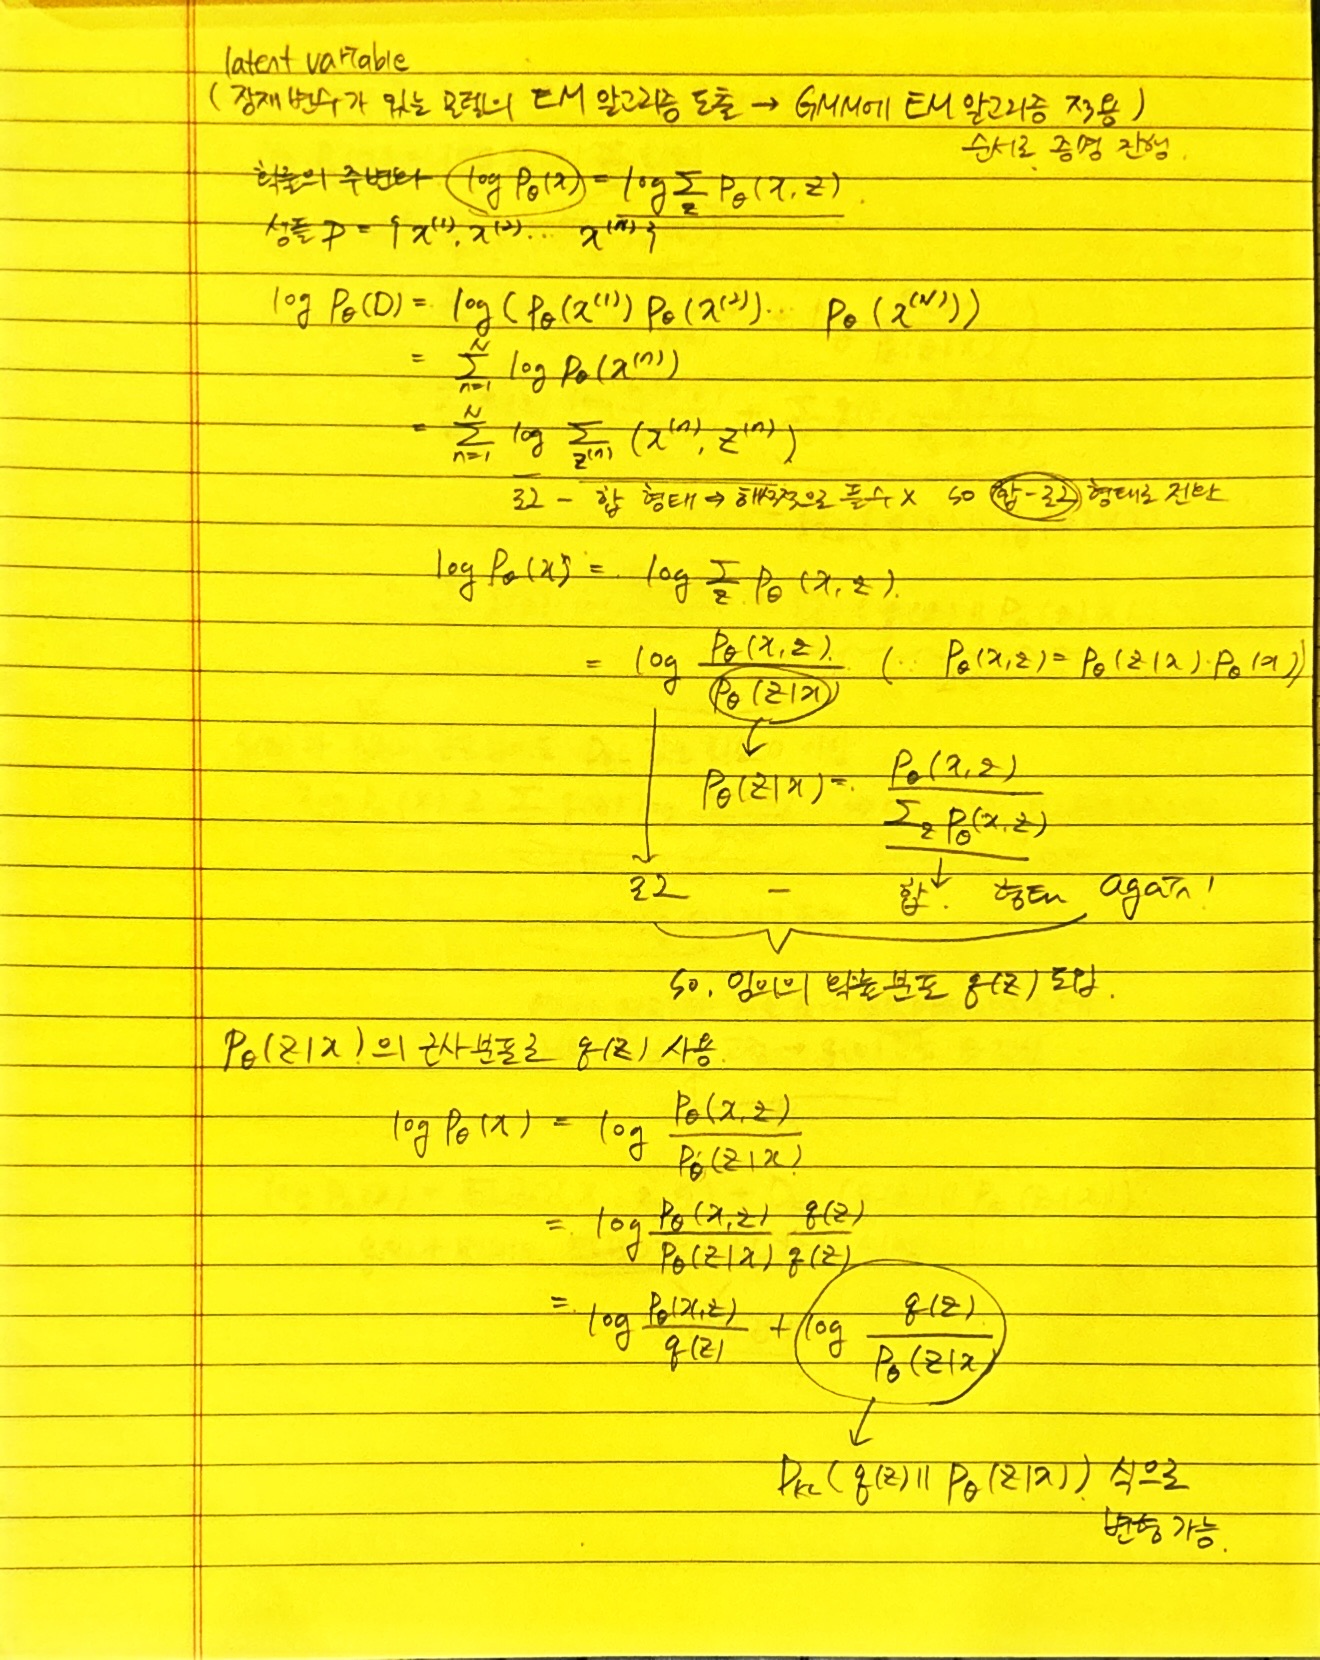 latent variable
(잠재변수가 있는 모델의 EM 알고리즘 도출 → GMM에 EM 알고리즘 적용)
순서로 증명 진행.
확률의 주변화 log Pθ(x) = log Σ_z Pθ(x, z)
샘플 D = {x⁽¹⁾, x⁽²⁾ ··· x⁽ᴺ⁾}
log Pθ(D) = log (Pθ(x⁽¹⁾) Pθ(x⁽²⁾) ··· Pθ(x⁽ᴺ⁾))
= Σ_{n=1}^{N} log Pθ(x⁽ⁿ⁾)
= Σ_{n=1}^{N} log Σ_{z⁽ⁿ⁾} (x⁽ⁿ⁾, z⁽ⁿ⁾)
로그 - 합 형태 → 해석적으로 풀수 x so 합-로그 형태로 전환
log Pθ(x) = log Σ_z Pθ(x, z).
= log Pθ(x, z) / Pθ(z|x) (∵ Pθ(x, z) = Pθ(z|x)·Pθ(x))
Pθ(z|x) = Pθ(x, z) / Σ_z Pθ(x, z)
로그 - 합 형태 again!
so, 임의의 확률분포 q(z) 도입.
Pθ(z|x)의 근사분포로 q(z) 사용.
log Pθ(x) = log Pθ(x, z) / Pθ(z|x)
= log Pθ(x, z) / Pθ(z|x) q(z) / q(z)
= log Pθ(x, z) / q(z) + log q(z) / Pθ(z|x
D_KL(q(z) || Pθ(z|x)) 식으로
변형 가능.